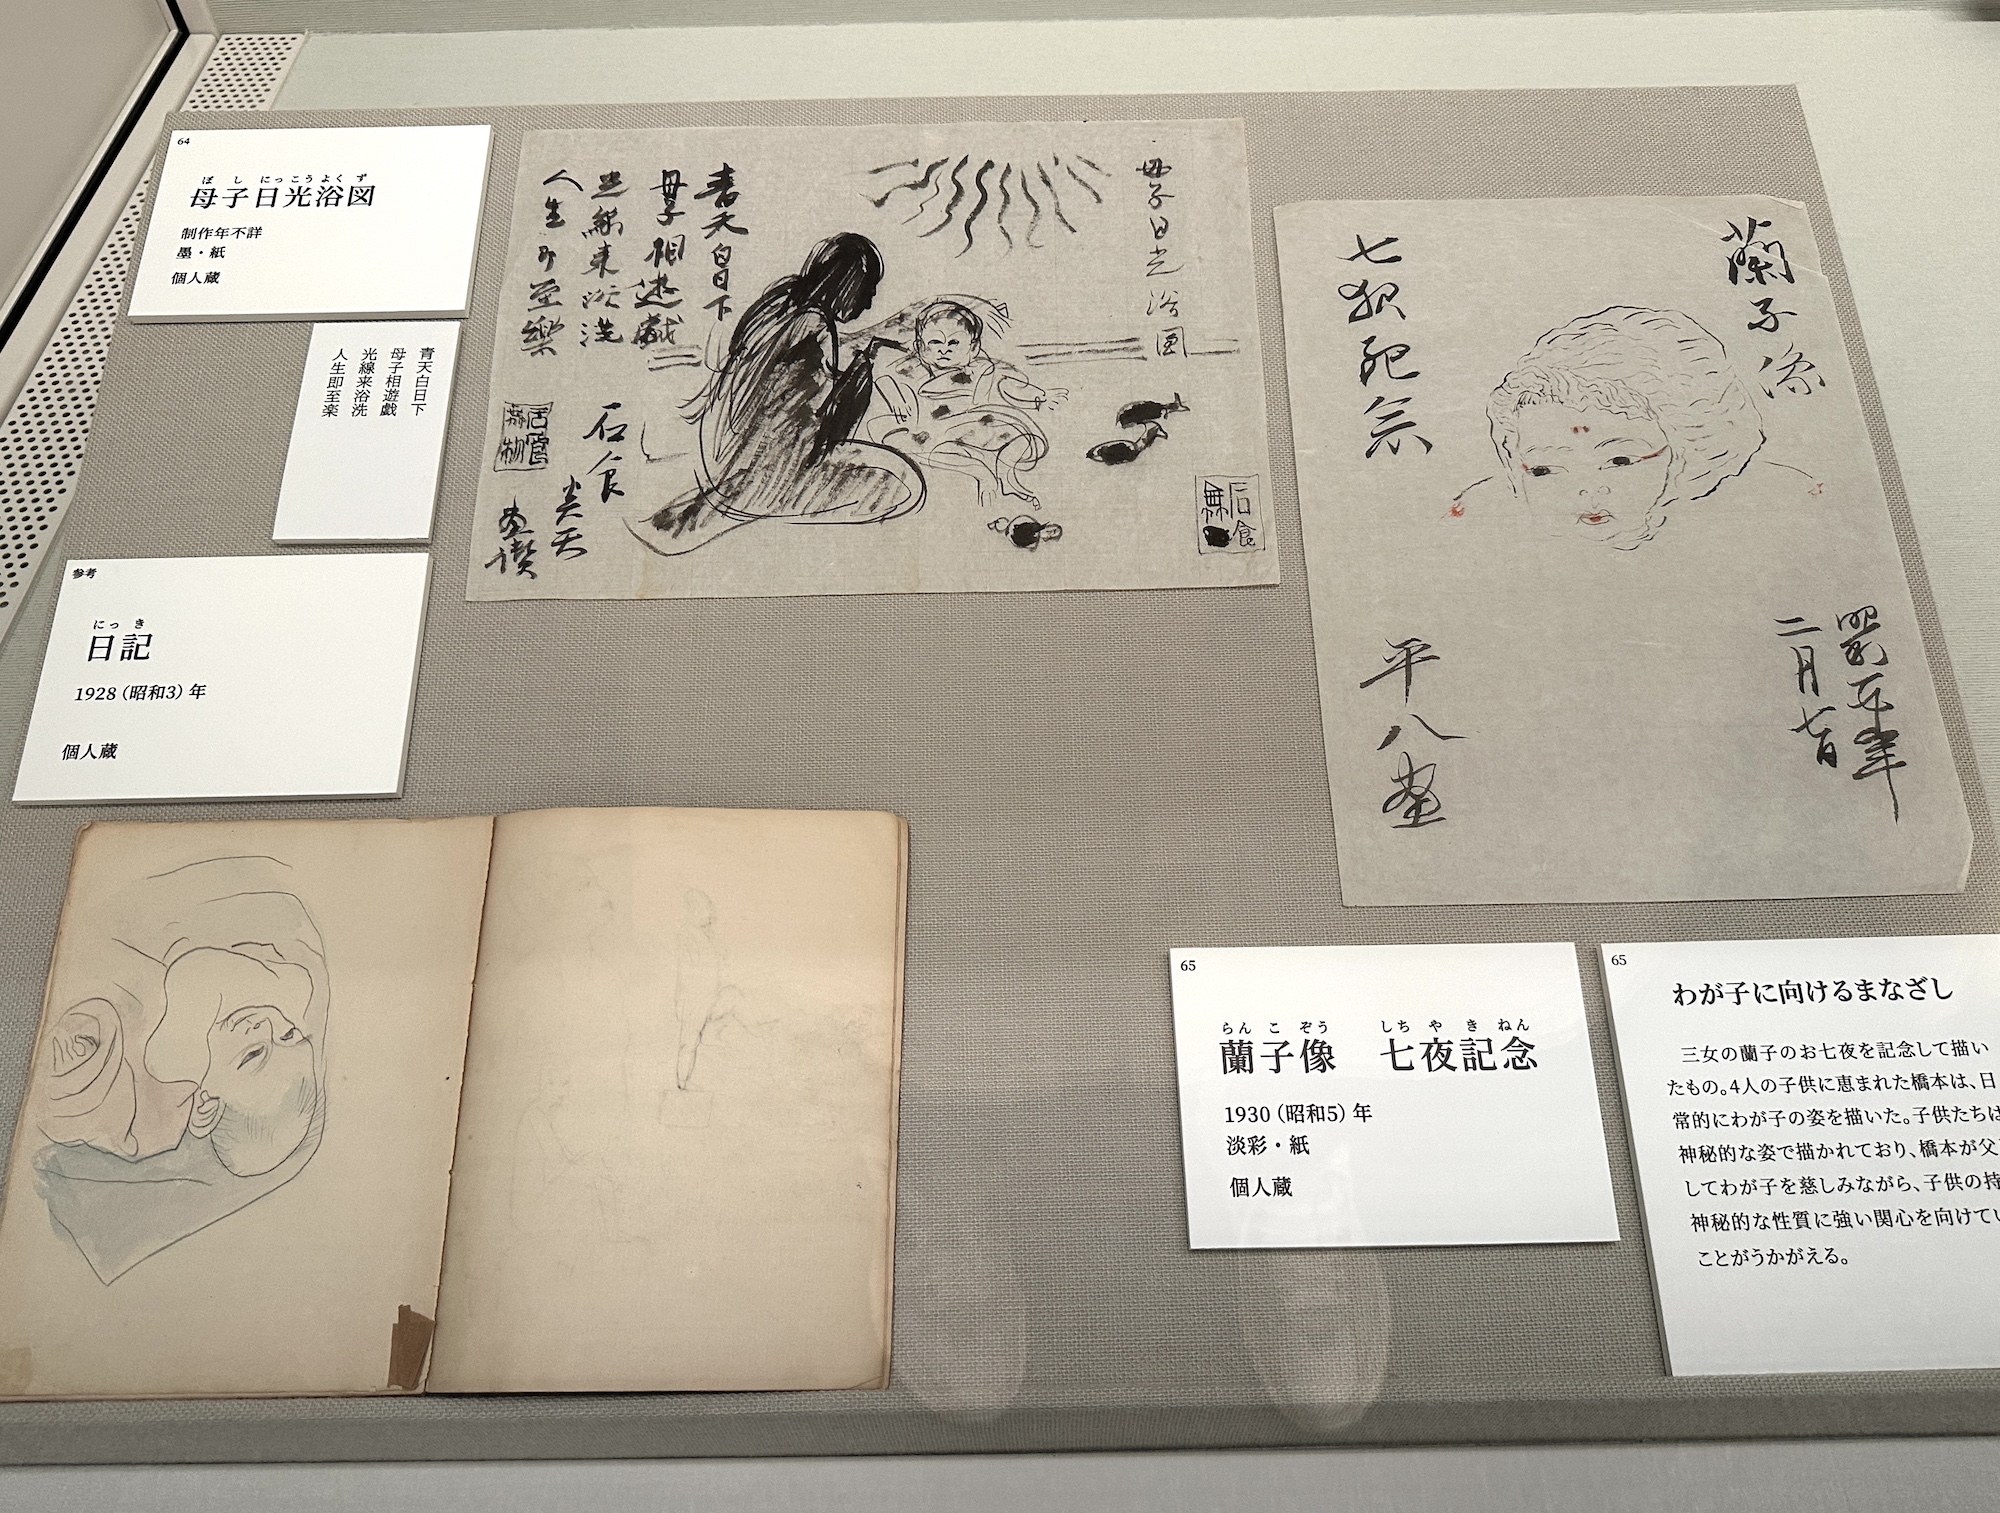 64
ぼ し にっこうよく ず
母子日光浴図
制作年不詳
墨・紙
個人蔵
青天白日下
母子相遊戯
光線来浴洗
人生即至楽
母子日光浴図
青天白日下
母子相遊戯
光線来浴洗
人生即至樂
石食
炎天
画讃
石食
無物
石食
無
蘭子像
七夜記念
昭和五年
二月七日
平八画
参考
にっ き
日記
1928（昭和3）年
個人蔵
65
らん こ ぞう しち や き ねん
蘭子像 七夜記念
1930（昭和5）年
淡彩・紙
個人蔵
65
わが子に向けるまなざし
三女の蘭子のお七夜を記念して描い
たもの。4人の子供に恵まれた橋本は、日
常的にわが子の姿を描いた。子供たちは
神秘的な姿で描かれており、橋本が父
してわが子を慈しみながら、子供の持
神秘的な性質に強い関心を向けてい
ことがうかがえる。